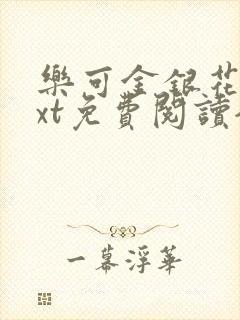 樂可金銀花
xt免費閱讀
一幕浮華